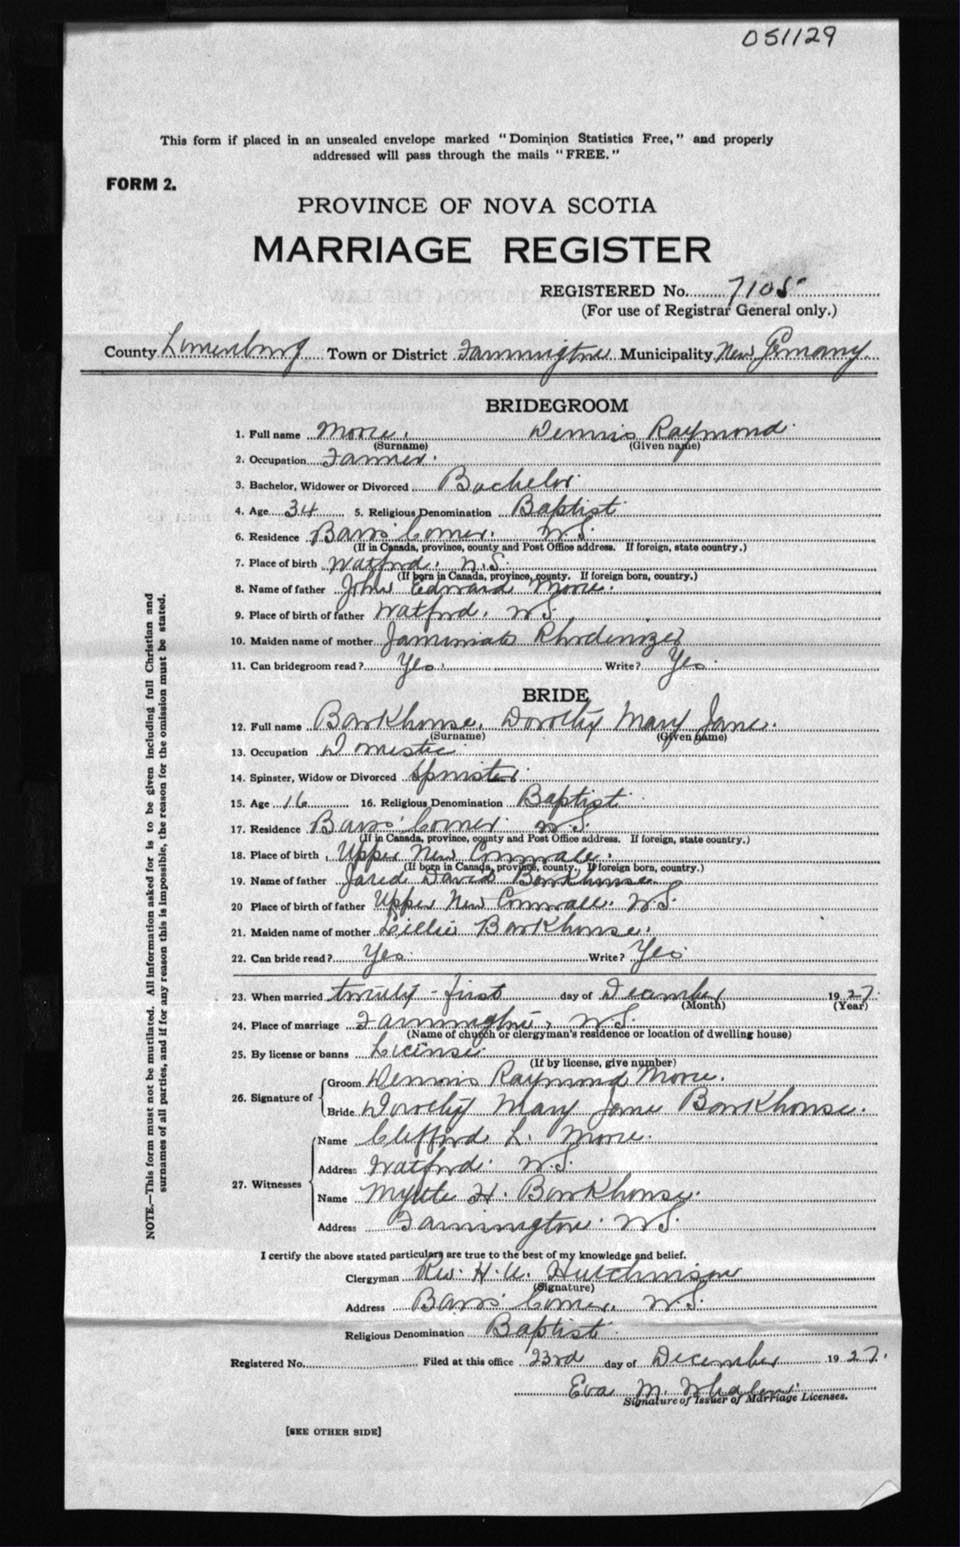 051129
This form if placed in an unsealed envelope marked "Dominion Statistics Free," and properly
addressed will pass through the mails "FREE."
FORM 2.
PROVINCE OF NOVA SCOTIA
MARRIAGE REGISTER
REGISTERED No. 7105
(For use of Registrar General only.)
County Lunenburg Town or District Farmington Municipality New Germany
BRIDEGROOM
1. Full name Moore. Dennis Raymond.
(Surname) (Given name)
2. Occupation Farmer.
3. Bachelor, Widower or Divorced Bachelor
4. Age 34 5. Religious Denomination Baptist
6. Residence Barss Corner. N.S.
(If in Canada, province, county and Post Office address. If foreign, state country.)
7. Place of birth Watford. N.S.
(If born in Canada, province, county. If foreign born, country.)
8. Name of father John Edward Moore.
9. Place of birth of father Watford. N.S.
10. Maiden name of mother Rhodenizer
11. Can bridegroom read? Yes. Write? Yes.
BRIDE
12. Full name Barkhouse. Dorothy Mary Jane.
(Surname) (Given name)
13. Occupation Domestic
14. Spinster, Widow or Divorced Spinster
15. Age 16 16. Religious Denomination Baptist
17. Residence Barss Corner N.S.
(If in Canada, province, county and Post Office address. If foreign, state country.)
18. Place of birth Upper New Cornwall.
(If born in Canada, province, county. If foreign born, country.)
19. Name of father Jared David Barkhouse
20 Place of birth of father Upper New Cornwall. N.S.
21. Maiden name of mother Lillie Barkhouse.
22. Can bride read? Yes. Write? Yes
23. When married twenty-first day of December 1927.
(Month) (Year)
24. Place of marriage Farmington, N.S.
(Name of church or clergyman's residence or location of dwelling house)
25. By license or banns License
(If by license, give number)
26. Signature of
Groom Dennis Raymond Moore.
Bride Dorothy Mary Jane Barkhouse.
27. Witnesses
Name Clifford L. Moore.
Address Watford. N.S.
Name H. Barkhouse.
Address Farmington. N.S.
I certify the above stated particulars are true to the best of my knowledge and belief.
Clergyman Rev. H. Hutchinson
(Signature)
Address Barss Corner. N.S.
Religious Denomination Baptist.
Registered No. Filed at this office 23rd day of December 1927.
Eva M. Whalen.
Signature of Issuer of Marriage Licenses.
[SEE OTHER SIDE]
NOTE.—This form must not be mutilated. All information asked for is to be given including full Christian and
surnames of all parties, and if for any reason this is impossible, the reason for the omission must be stated.